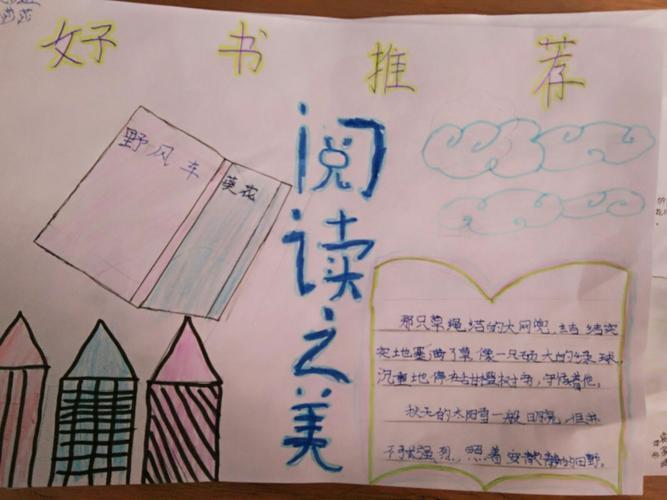 好书推荐
野风车
葵花
阅读之美
那只草绳结的大网兜,结结实
实地塞满了草,像一只硕大的绿球,
沉重地停在甘蔗树旁,守候着他。
秋天的太阳雪一般明亮,但并
不强烈,照着安静的田野。